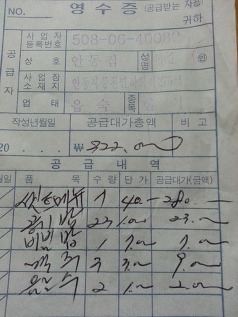 NO. 영수증 (공급받는 자용)
귀하
공급자
사업자등록번호 508-06-40080
상호 안동집 성명 ㊞
사업장소재지
업태 음식 종목
작성년월일 공급대가총액 비고
20 . . . ₩322,000
공급내역
월일 품목 수량 단가 공급대가(금액)
세트메뉴 7 40.- 280.-
공기밥 23 1.000 23.-
비빔밥 1 7.000 7.-
맥주 3 3.000 9.-
음료수 2 1.000 2.000